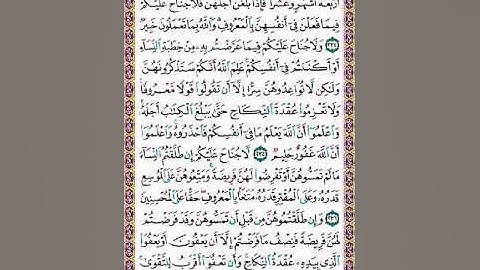 أَرْبَعَةَ أَشْهُرٍ وَعَشْرًا فَإِذَا بَلَغْنَ أَجَلَهُنَّ فَلَا جُنَاحَ عَلَيْكُمْ
فِيمَا فَعَلْنَ فِي أَنْفُسِهِنَّ بِالْمَعْرُوفِ وَاللَّهُ بِمَا تَعْمَلُونَ خَبِيرٌ
﴿٢٣٤﴾ وَلَا جُنَاحَ عَلَيْكُمْ فِيمَا عَرَّضْتُمْ بِهِ مِنْ خِطْبَةِ النِّسَاءِ
أَوْ أَكْنَنْتُمْ فِي أَنْفُسِكُمْ عَلِمَ اللَّهُ أَنَّكُمْ سَتَذْكُرُونَهُنَّ
وَلَكِنْ لَا تُوَاعِدُوهُنَّ سِرًّا إِلَّا أَنْ تَقُولُوا قَوْلًا مَعْرُوفًا
وَلَا تَعْزِمُوا عُقْدَةَ النِّكَاحِ حَتَّى يَبْلُغَ الْكِتَابُ أَجَلَهُ
وَاعْلَمُوا أَنَّ اللَّهَ يَعْلَمُ مَا فِي أَنْفُسِكُمْ فَاحْذَرُوهُ وَاعْلَمُوا
أَنَّ اللَّهَ غَفُورٌ حَلِيمٌ ﴿٢٣٥﴾ لَا جُنَاحَ عَلَيْكُمْ إِنْ طَلَّقْتُمُ النِّسَاءَ
مَا لَمْ تَمَسُّوهُنَّ أَوْ تَفْرِضُوا لَهُنَّ فَرِيضَةً وَمَتِّعُوهُنَّ عَلَى الْمُوسِعِ
قَدَرُهُ وَعَلَى الْمُقْتِرِ قَدَرُهُ مَتَاعًا بِالْمَعْرُوفِ حَقًّا عَلَى الْمُحْسِنِينَ
﴿٢٣٦﴾ وَإِنْ طَلَّقْتُمُوهُنَّ مِنْ قَبْلِ أَنْ تَمَسُّوهُنَّ وَقَدْ فَرَضْتُمْ
لَهُنَّ فَرِيضَةً فَنِصْفُ مَا فَرَضْتُمْ إِلَّا أَنْ يَعْفُونَ أَوْ يَعْفُوَا
الَّذِي بِيَدِهِ عُقْدَةُ النِّكَاحِ وَأَنْ تَعْفُوا أَقْرَبُ لِلتَّقْوَى